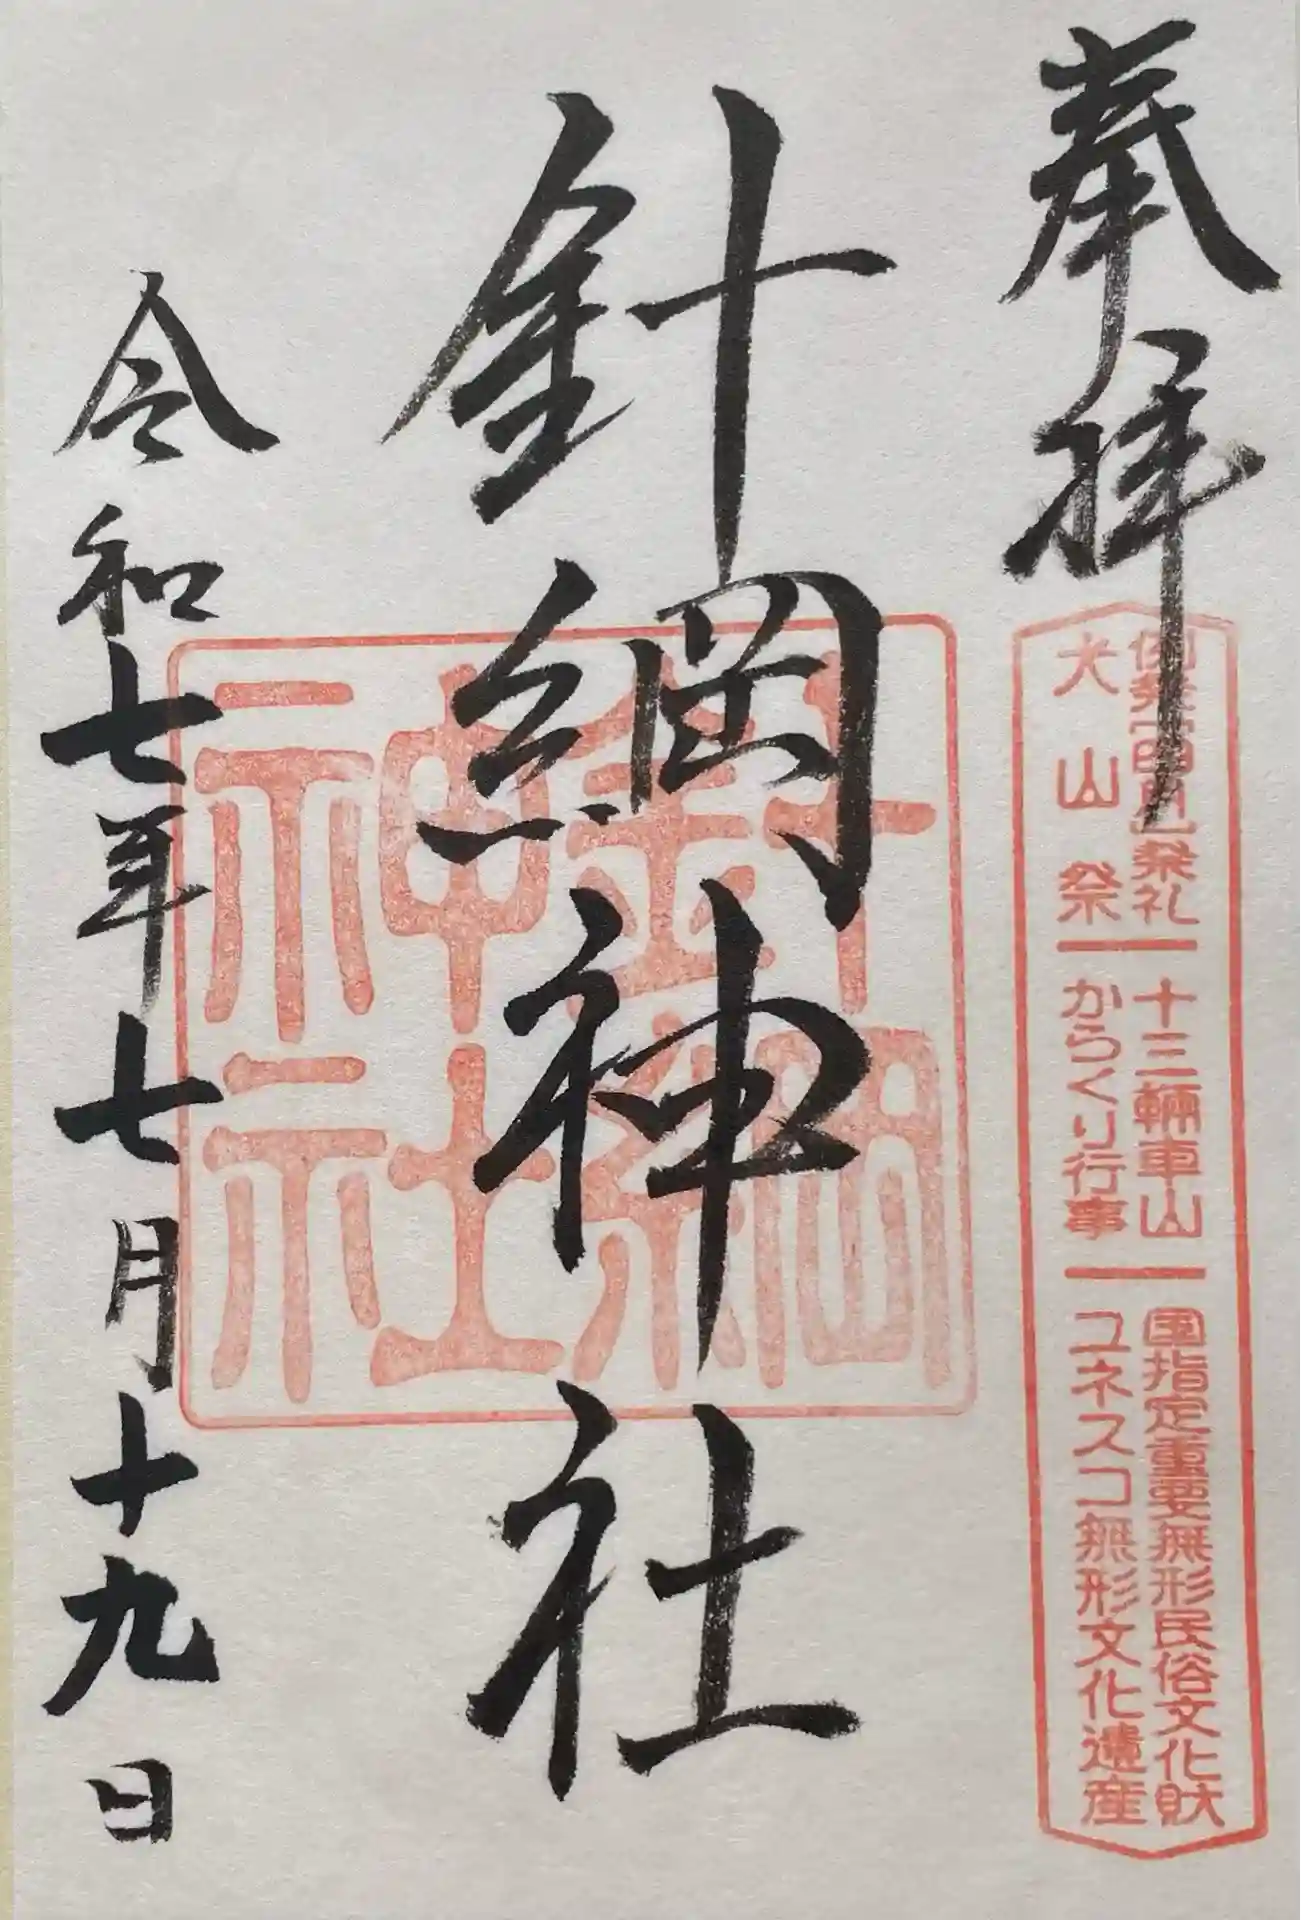 奉拝
例祭(四月)祭礼 十三輛車山 国指定重要無形民俗文化財
犬山祭 からくり行事 ユネスコ無形文化遺産
針綱神社
針綱
神社
令和七年七月十九日